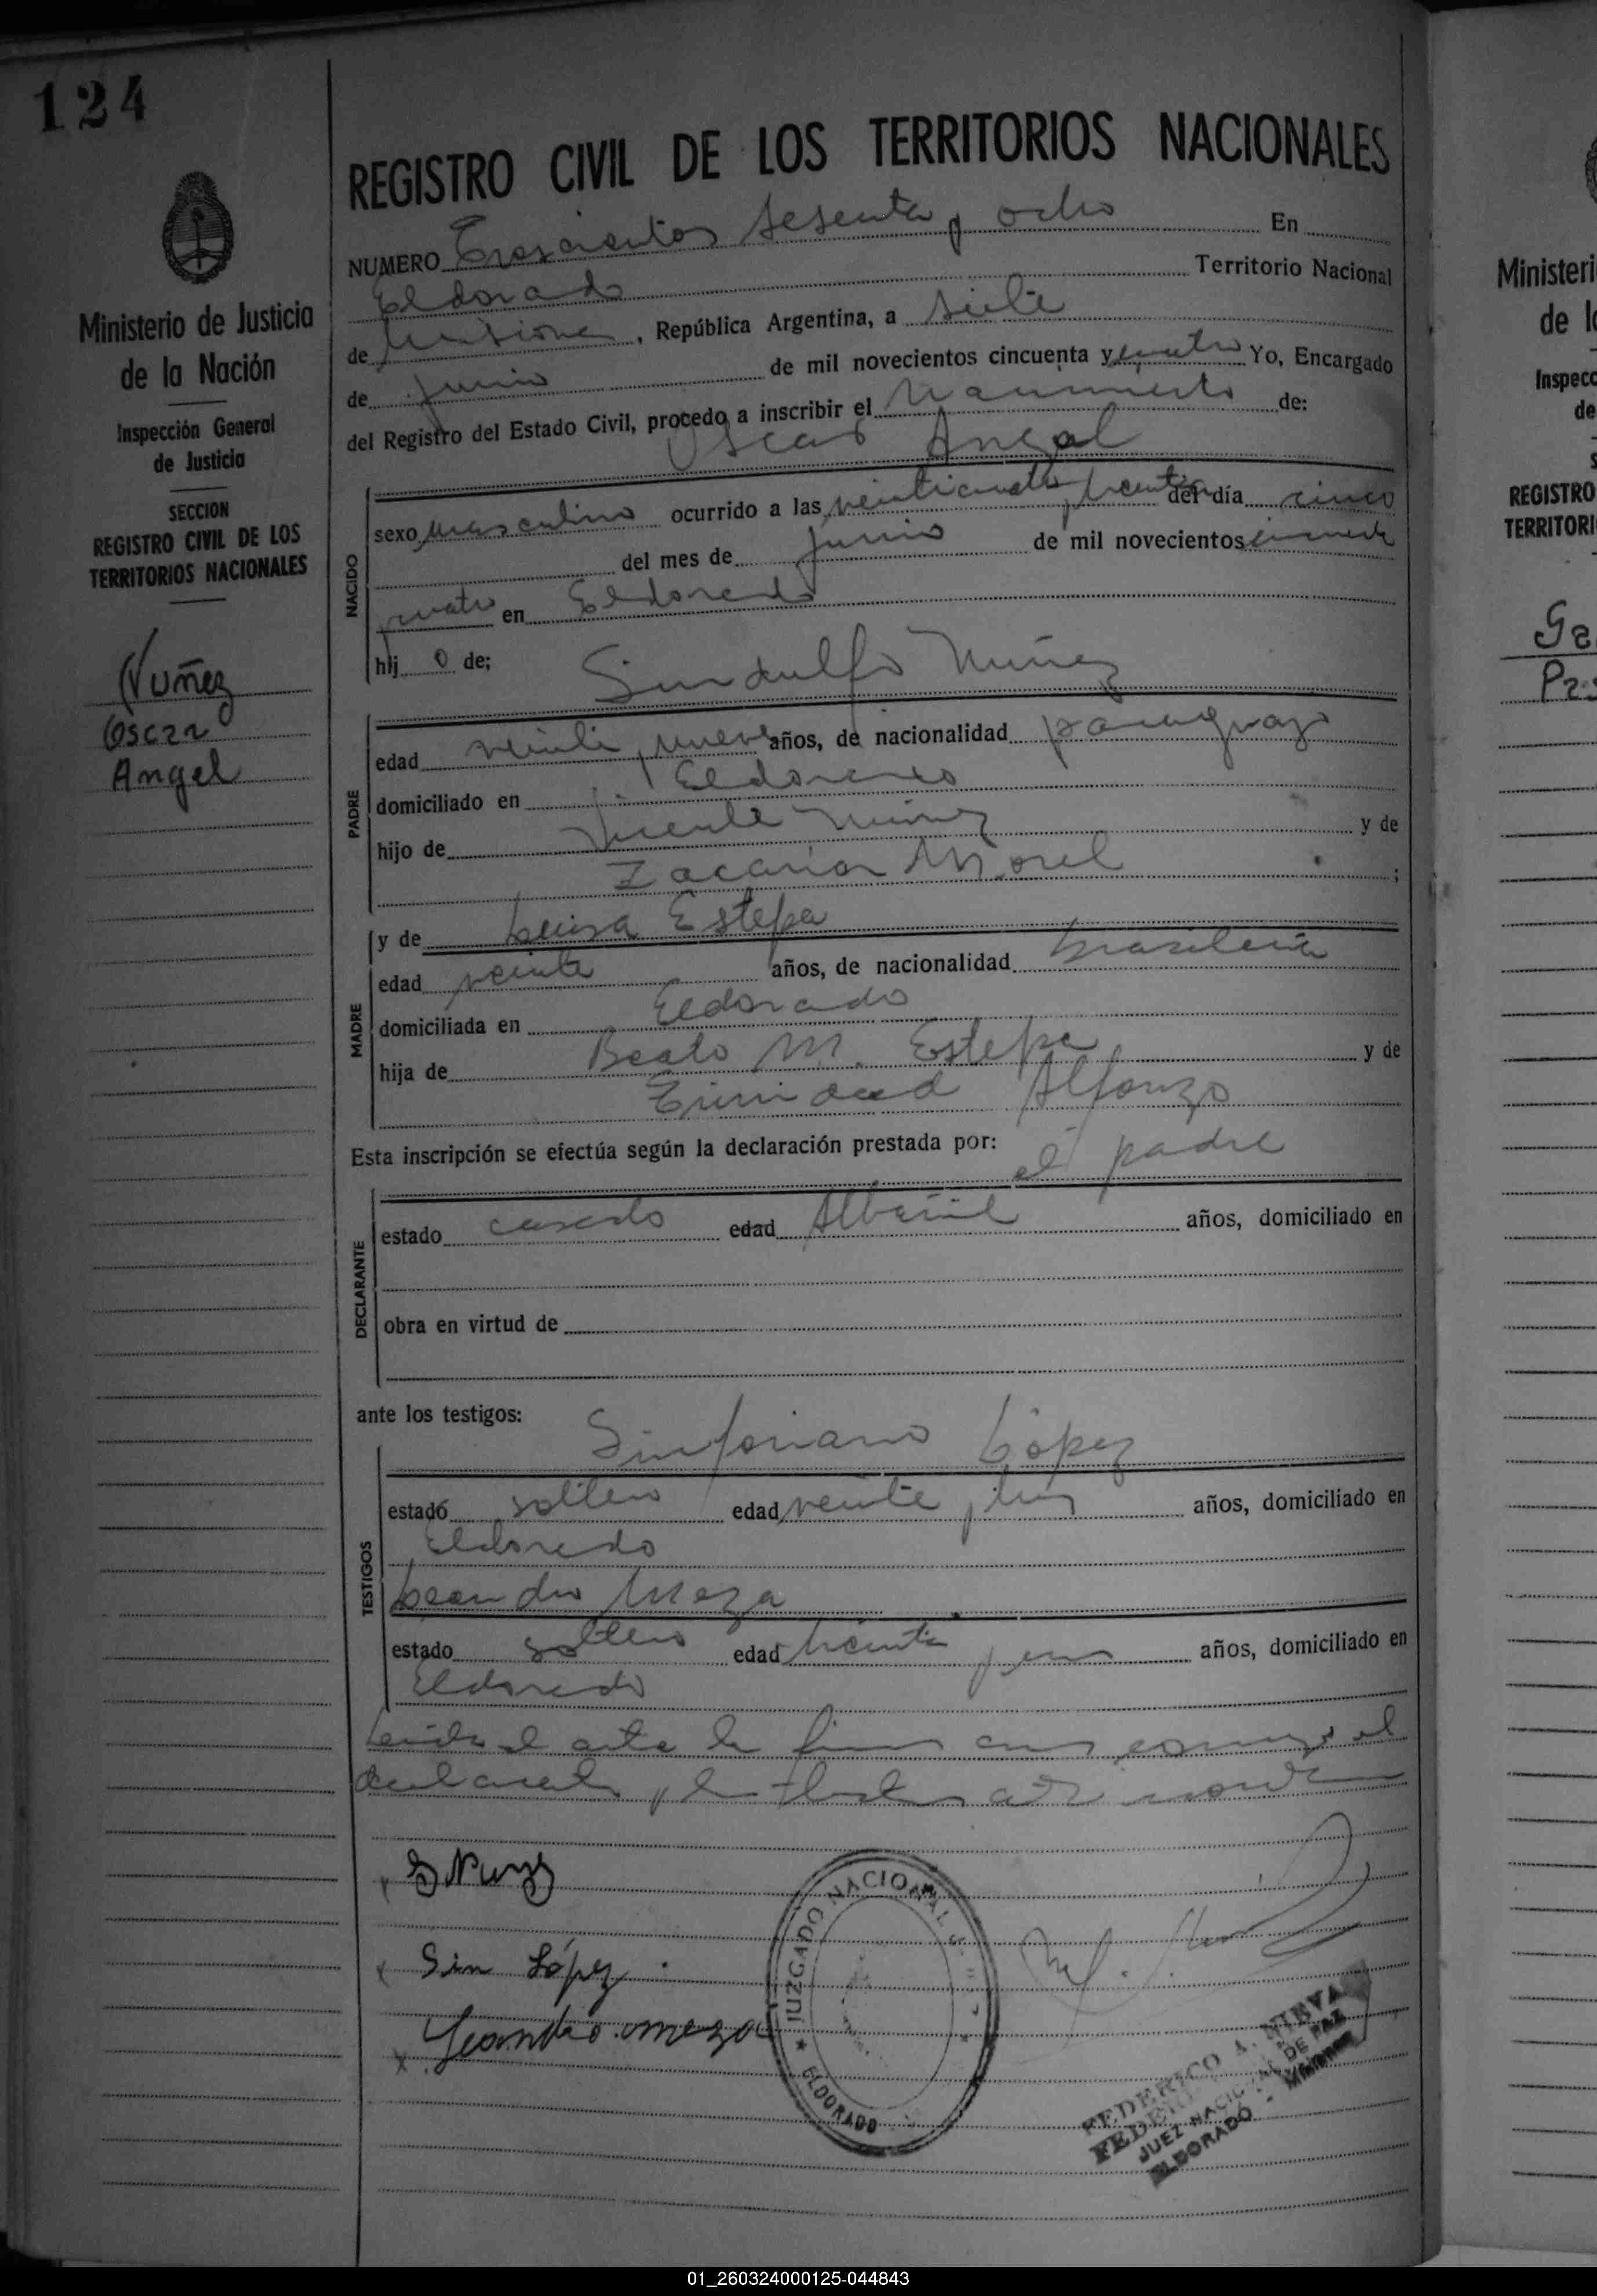 124
REGISTRO CIVIL DE LOS TERRITORIOS NACIONALES
NUMERO Trescientos sesenta y ocho En
Eldorado Territorio Nacional
de Misiones, República Argentina, a siete
de junio de mil novecientos cincuenta y cuatro Yo, Encargado
del Registro del Estado Civil, procedo a inscribir el Nacimiento de:
Oscar Angel
Ministerio de Justicia
de la Nación
Inspección General
de Justicia
SECCION
REGISTRO CIVIL DE LOS
TERRITORIOS NACIONALES
Nuñez
Oscar
Angel
NACIDO
sexo masculino ocurrido a las veinticuatro y treinta del día cinco
del mes de junio de mil novecientos cincuenta
y cuatro en Eldorado
hij o de;
Sindulfo Nuñez
PADRE
edad veinti y nueve años, de nacionalidad paraguayo
domiciliado en Eldorado
hijo de Vicente Nuñez y de
Zacarias Morel ;
MADRE
y de Luisa Estepa
edad veinte años, de nacionalidad brasileña
domiciliada en Eldorado
hija de Beato M. Estepa y de
Trinidad Alfonzo
Esta inscripción se efectúa según la declaración prestada por:
el padre
DECLARANTE
estado casado edad Albañil años, domiciliado en
obra en virtud de
ante los testigos:
Sinforiano López
TESTIGOS
estado soltero edad veinte y años, domiciliado en
Eldorado
Leandro Meza
estado soltero edad treinta y un años, domiciliado en
Eldorado
Leida el acta la firman conmigo el
declarante y los testigos
S Nuñez
Sin López
Leandro meza
JUZGADO NACIONAL
ELDORADO
FEDERICO A. NIEVA
JUEZ NACIONAL DE PAZ
ELDORADO - Misiones
Ministeri
de l
Inspecc
de
REGISTRO
TERRITORI
01_260324000125-044843